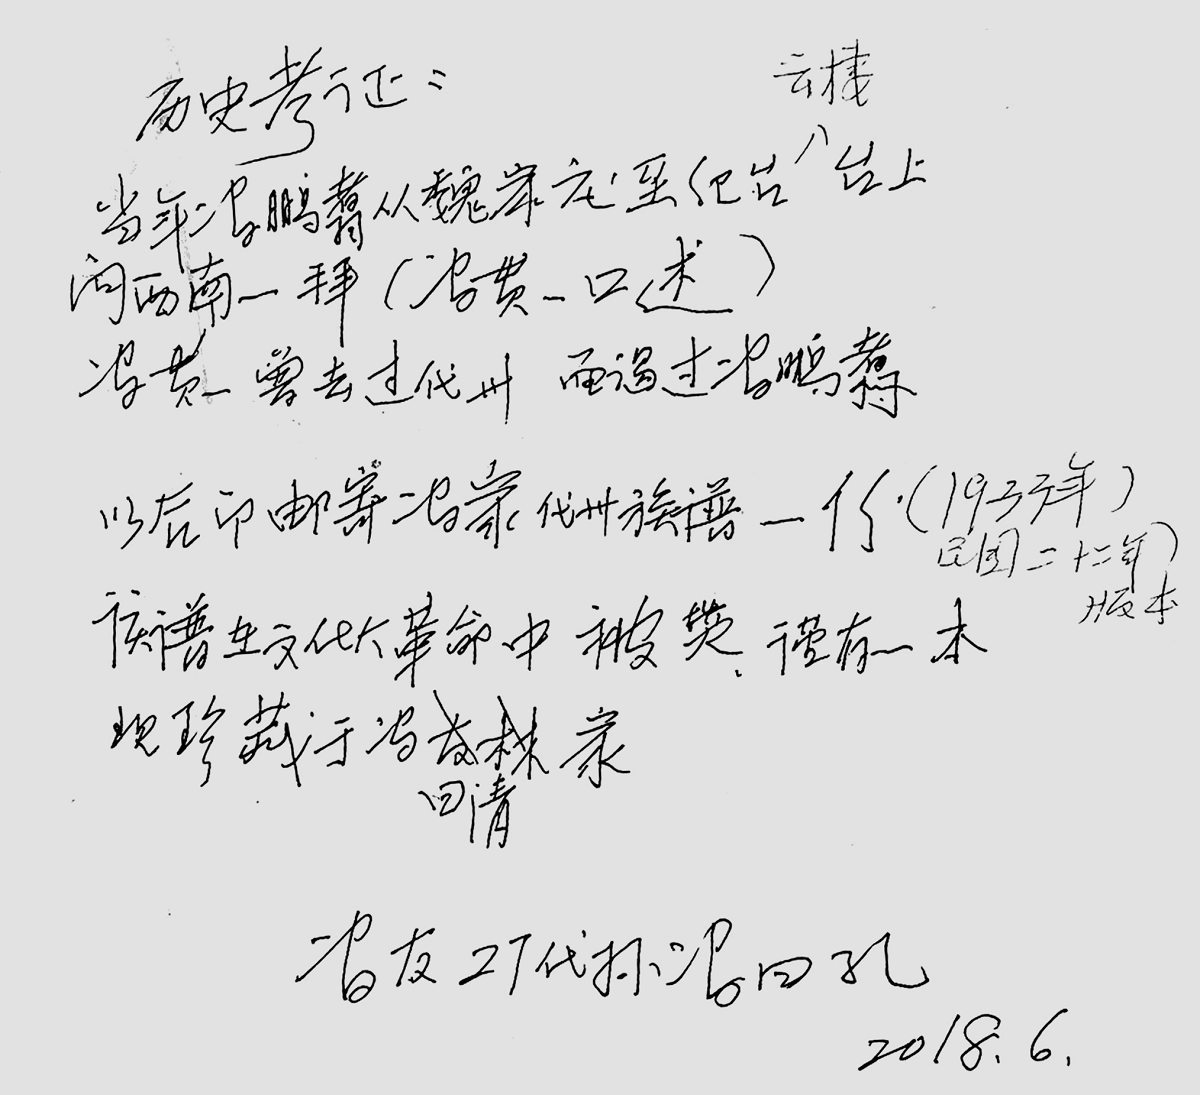 历史考证:
云楼
当年冯鹏翥从魏家庄至纪台台上
向西南一拜（冯贯一口述）
冯贯一曾去过代州 面谒过冯鹏翥
以后即邮寄冯家代州族谱一份.（1933年）
民国二十二年）
版本
族谱在文化大革命中被焚、谨有一本
现珍藏于冯友株家
曰清
冯友27代孙冯曰孔
2018.6.